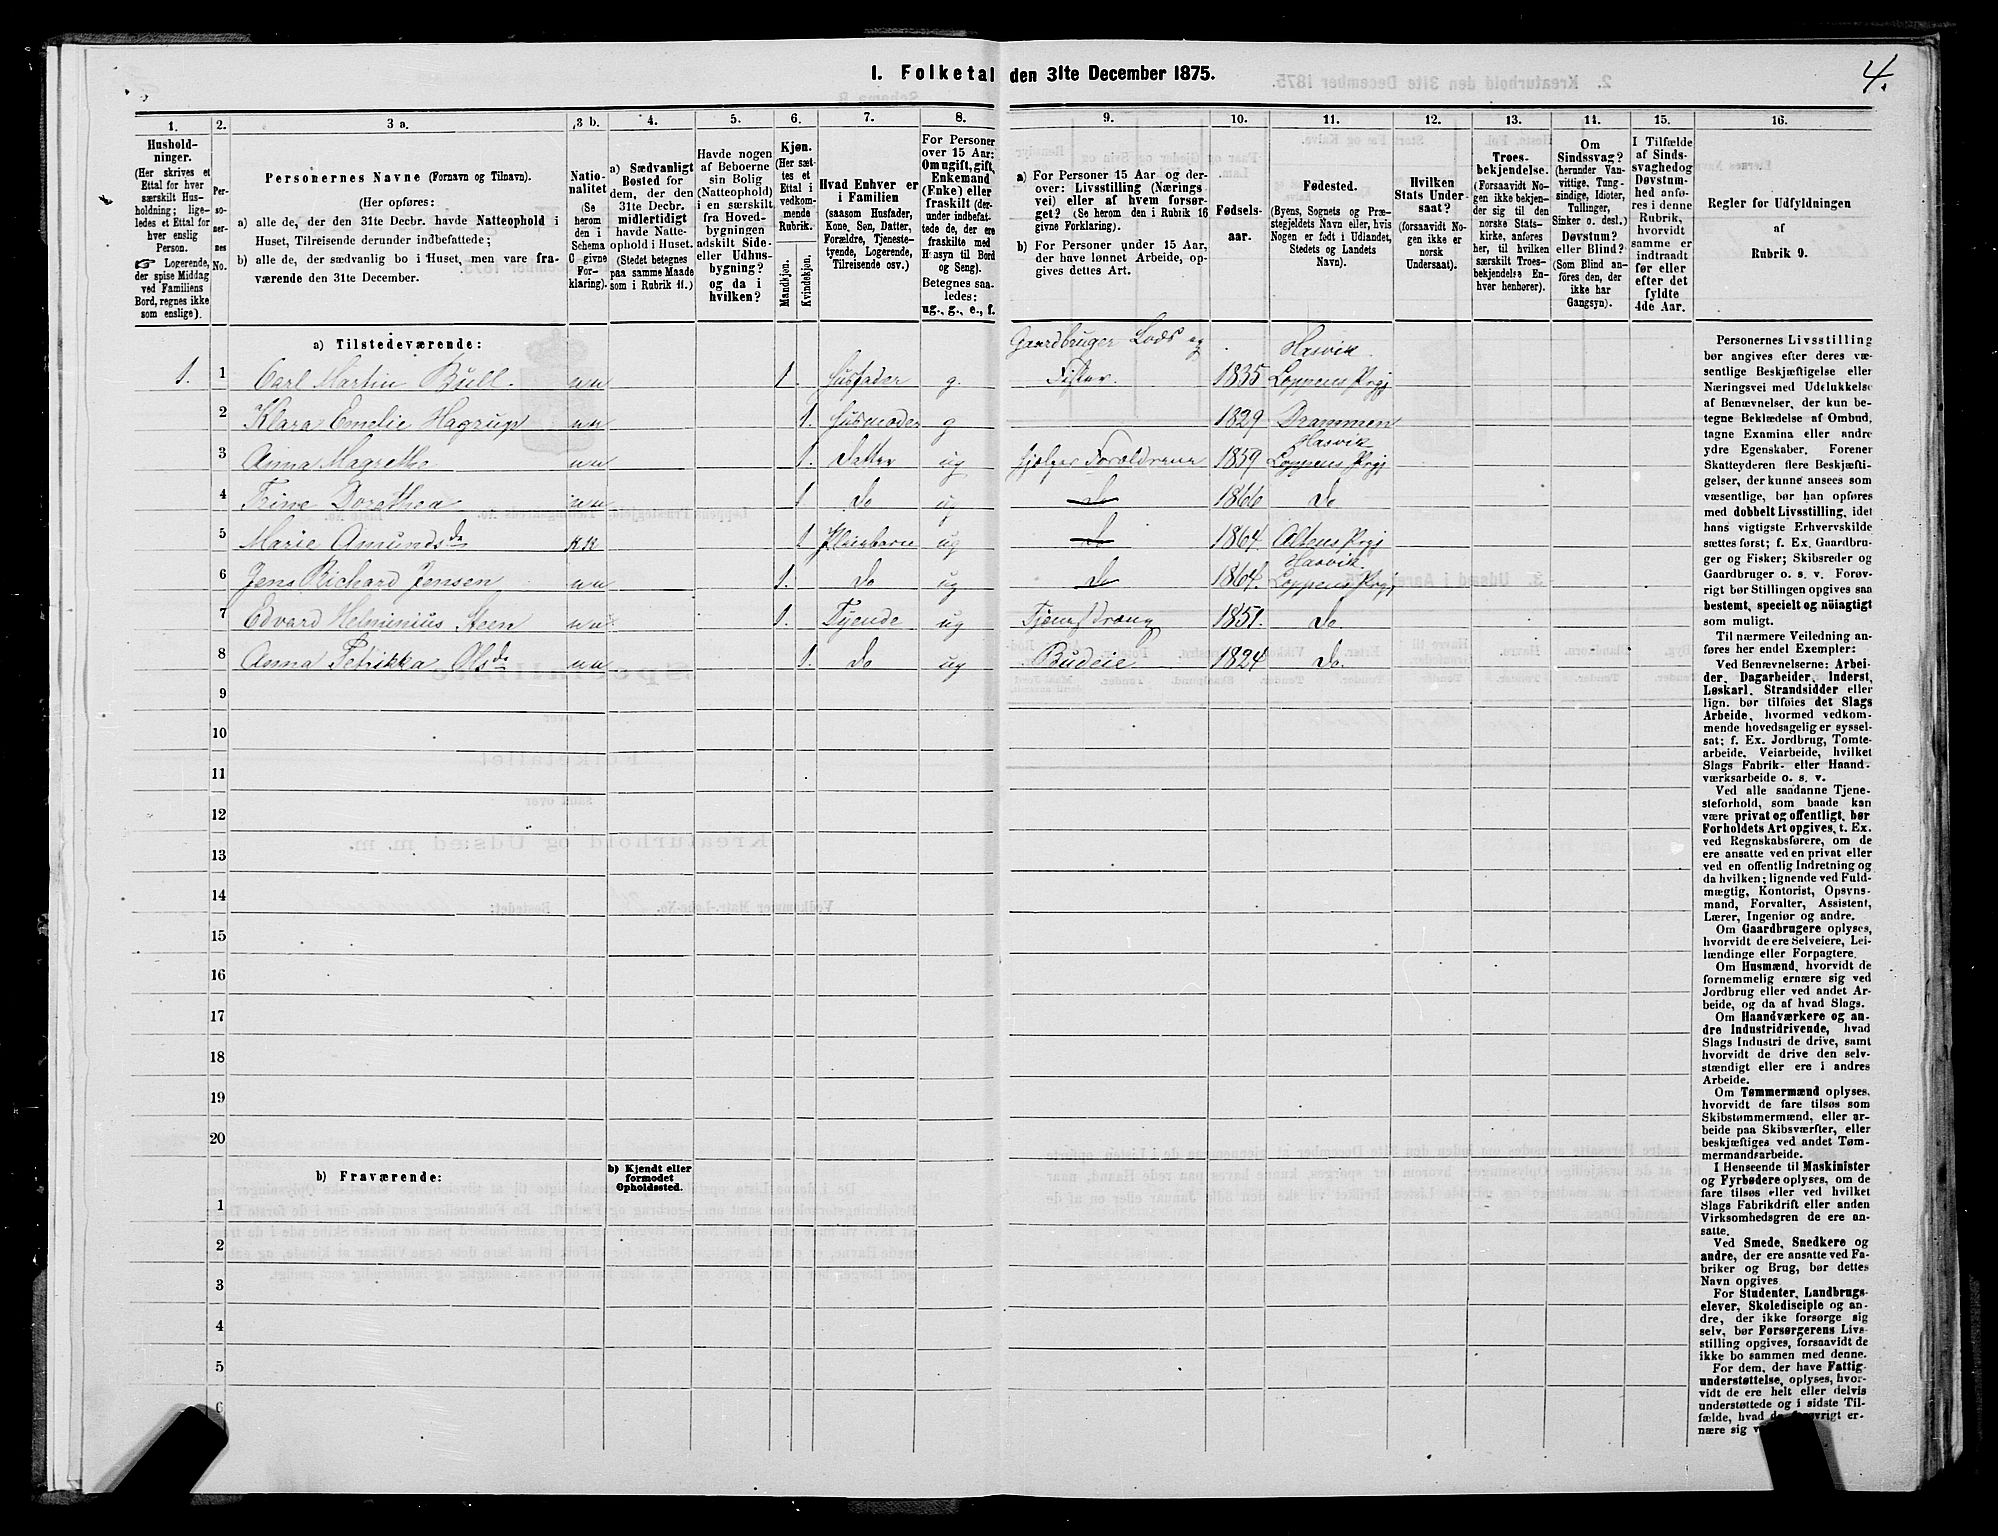 4.
1. Folketal den 31te December 1875.
1.
2.
3 a.
3 b.
4.
5.
6.
7.
8.
9.
10.
11.
12.
13.
14.
15.
16.
Hushold-
ninger.
(Her skrives et
Ettal for hver
særskilt Hus-
holdning; lige-
ledes et Ettal for
hver enslig
Person.
☞ Logerende,
der spise Middag
ved Familiens
Bord, regnes ikke
som enslige).
Per-
so-
ner-
nes
No.
Personernes Navne (Fornavn og Tilnavn).
(Her opføres:
a) alle de, der den 31te Decbr. havde Natteophold i
Huset, Tilreisende derunder indbefattede;
b) alle de, der sædvanlig bo i Huset, men vare fra-
værende den 31te December.
Natio-
nalitet
(Se
herom
den i
Schema
C givne
For-
klaring).
a) Sædvanligt
Bosted for
dem, der den
31te Decbr.
midlertidigt
havde Natte-
ophold i Huset.
(Stedet betegnes
paa samme Maade
som i Rubrik 11.)
Havde nogen
af Beboerne
sin Bolig
(Natteophold)
i en særskilt
fra Hoved-
bygningen
adskilt Side-
eller Udhus-
bygning?
og da i
hvilken?
Kjøn.
(Her sæt-
tes et
Ettal i
vedkom-
mende
Rubrik.
Mandkjøn.
Kvindekjøn.
Hvad Enhver er
i Familien
(saasom Husfader,
Kone, Søn, Datter,
Forældre, Tjeneste-
tyende, Logerende,
Tilreisende osv.)
For Personer
over 15 Aar:
Om ugift, gift,
Enkemand
(Enke) eller
fraskilt (der-
under indbefat-
tede de, der ere
fraskilte med
Hensyn til Bord
og Seng).
Betegnes saa-
ledes:
ug., g., e., f.
a) For Personer 15 Aar og der-
over: Livsstilling (Nærings
vei) eller af hvem forsør-
get? (Se herom den i Rubrik 16
givne Forklaring).
b) For Personer under 15 Aar,
der have lønnet Arbeide, op-
gives dettes Art.
Fødsels-
aar.
Fødested.
(Byens, Sognets og Præ-
stegjeldets Navn, eller, hvis
Nogen er født i Udlandet,
Stedets og Landets
Navn).
Hvilken
Stats Under-
saat?
(forsaavidt No-
gen ikke er
norsk
Undersaat).
Troes-
bekjendelse.
(Forsaavidt No-
gen ikke bekjen-
der sig til den
norske Stats-
kirke, anføres
her, til hvilken
særskilt Troes-
bekjendelse En-
hver henhører).
Om
Sindssvag?
(herunder Van-
vittige, Tung-
sindige, Idioter,
Tullinger,
Sinker o. desl.)
Døvstum?
eller Blind?
(Som Blind an-
føres den, der
ikke har
Gangsyn).
I Tilfælde
af Sinds-
svaghed og
Døvstum-
hed anfø-
res i denne
Rubrik,
hvorvidt
samme er
indtraadt
før eller
efter det
fyldte
4de Aar.
Regler for Udfyldningen
af
Rubrik 9.
a) Tilstedeværende:
Gaardbruger Lods og Hasvik
1. 1 Carl Martin Bull nn 1. Husfader g. Fisker. 1835 Loppens Prgj
2 Klara Emelie Hagrup nn 1. Husmoder g 1829 Drammen
Hasvik
3 Anna Magrethe nn 1. Datter ug hjelper Forældrene 1859 Loppens Prgj
4 Trine Dorothea nn 1 do ug do 1866 do
5 Marie Amundsdr KK 1 Pleiebarn ug do 1864. Altens Prgj
Hasvik
6 Jens Richard Jensen nn 1. do ug do 1864. Loppens Prgj
7 Edvard Helminius Steen nn 1. Tyende ug Tjenstdræng 1851. do
8 Anna Petrikka Olsdr nn 1. do ug Budeie 1824 do.
9
10
11
12
13
14
15
16
17
18
19
20
b) Fraværende:
b) Kjendt eller
formodet
Opholdssted.
1
2
3
4
5
6
Personernes Livsstilling
bør angives efter deres væ-
sentlige Beskjæftigelse eller
Næringsvei med Udelukkelse
af Benævnelser, der kun be-
tegne Beklædelse af Ombud,
tagne Examina eller andre
ydre Egenskaber. Forener
Skatteyderen flere Beskjæfti-
gelser, der kunne ansees som
væsentlige, bør han opføres
med dobbelt Livsstilling, idet
hans vigtigste Erhvervskilde
sættes først; f. Ex. Gaardbru-
ger og Fisker; Skibsreder og
Gaardbruger o. s. v. Forøv-
rigt bør Stillingen opgives saa
bestemt, specielt og nöiagtigt
som muligt.
Til nærmere Veiledning an-
føres her endel Exempler:
Ved Benævnelserne: Arbei-
der, Dagarbeider, Inderst,
Løskarl, Strandsidder eller
lign. bør tilføies det Slags
Arbeide, hvormed vedkom-
mende hovedsagelig er syssel-
sat; f. Ex. Jordbrug, Tomte-
arbeide, Veiarbeide, hvilket
Slags Fabrik- eller Haand-
værksarbeide o. s. v.
Ved alle saadanne Tjene-
steforhold, som baade kan
være privat og offentligt, bør
Forholdets Art opgives, t. Ex.
ved Regnskabsførere, om de
ere ansatte ved en privat eller
ved en offentlig Indretning og
da hvilken; lignende ved Fuld-
mægtig, Kontorist, Opsyns-
mand, Forvalter, Assistent,
Lærer, Ingeniør og andre.
Om Gaardbrugere oplyses,
hvorvidt de ere Selveiere, Lei-
lændinge eller Forpagtere.
Om Husmænd, hvorvidt de
fornemmelig ernære sig ved
Jordbrug eller ved andet Ar-
beide, og da af hvad Slags.
Om Haandværkere og an-
dre Industridrivende, hvad
Slags Industri de drive, samt
hvorvidt de drive den selv-
stændigt eller ere i andres
Arbeide.
Om Tømmermænd oplyses,
hvorvidt de fare tilsøs som
Skibstømmermænd, eller ar-
beide paa Skibsværfter, eller
beskjæftiges ved andet Tøm-
mermandsarbeide.
I Henseende til Maskinister
og Fyrbødere oplyses, om de
fare tilsøs eller ved hvilket
Slags Fabrikdrift eller anden
Virksomhedsgren de ere an-
satte.
Ved Smede, Snedkere og
andre, der ere ansatte ved Fa-
briker og Brug, bør dettes
Navn opgives.
For Studenter, Landbrugs-
elever, Skoledisciple og an-
dre, der ikke forsørge sig
selv, bør Forsørgerens Livs-
stilling opgives, forsaavidt de
ikke bo sammen med denne.
For dem, der have Fattig-
understøttelse, oplyses, hvor-
vidt de ere helt eller delvis
understøttede og i sidste Til-
fælde, hvad de øvrigt er-
nære sig v